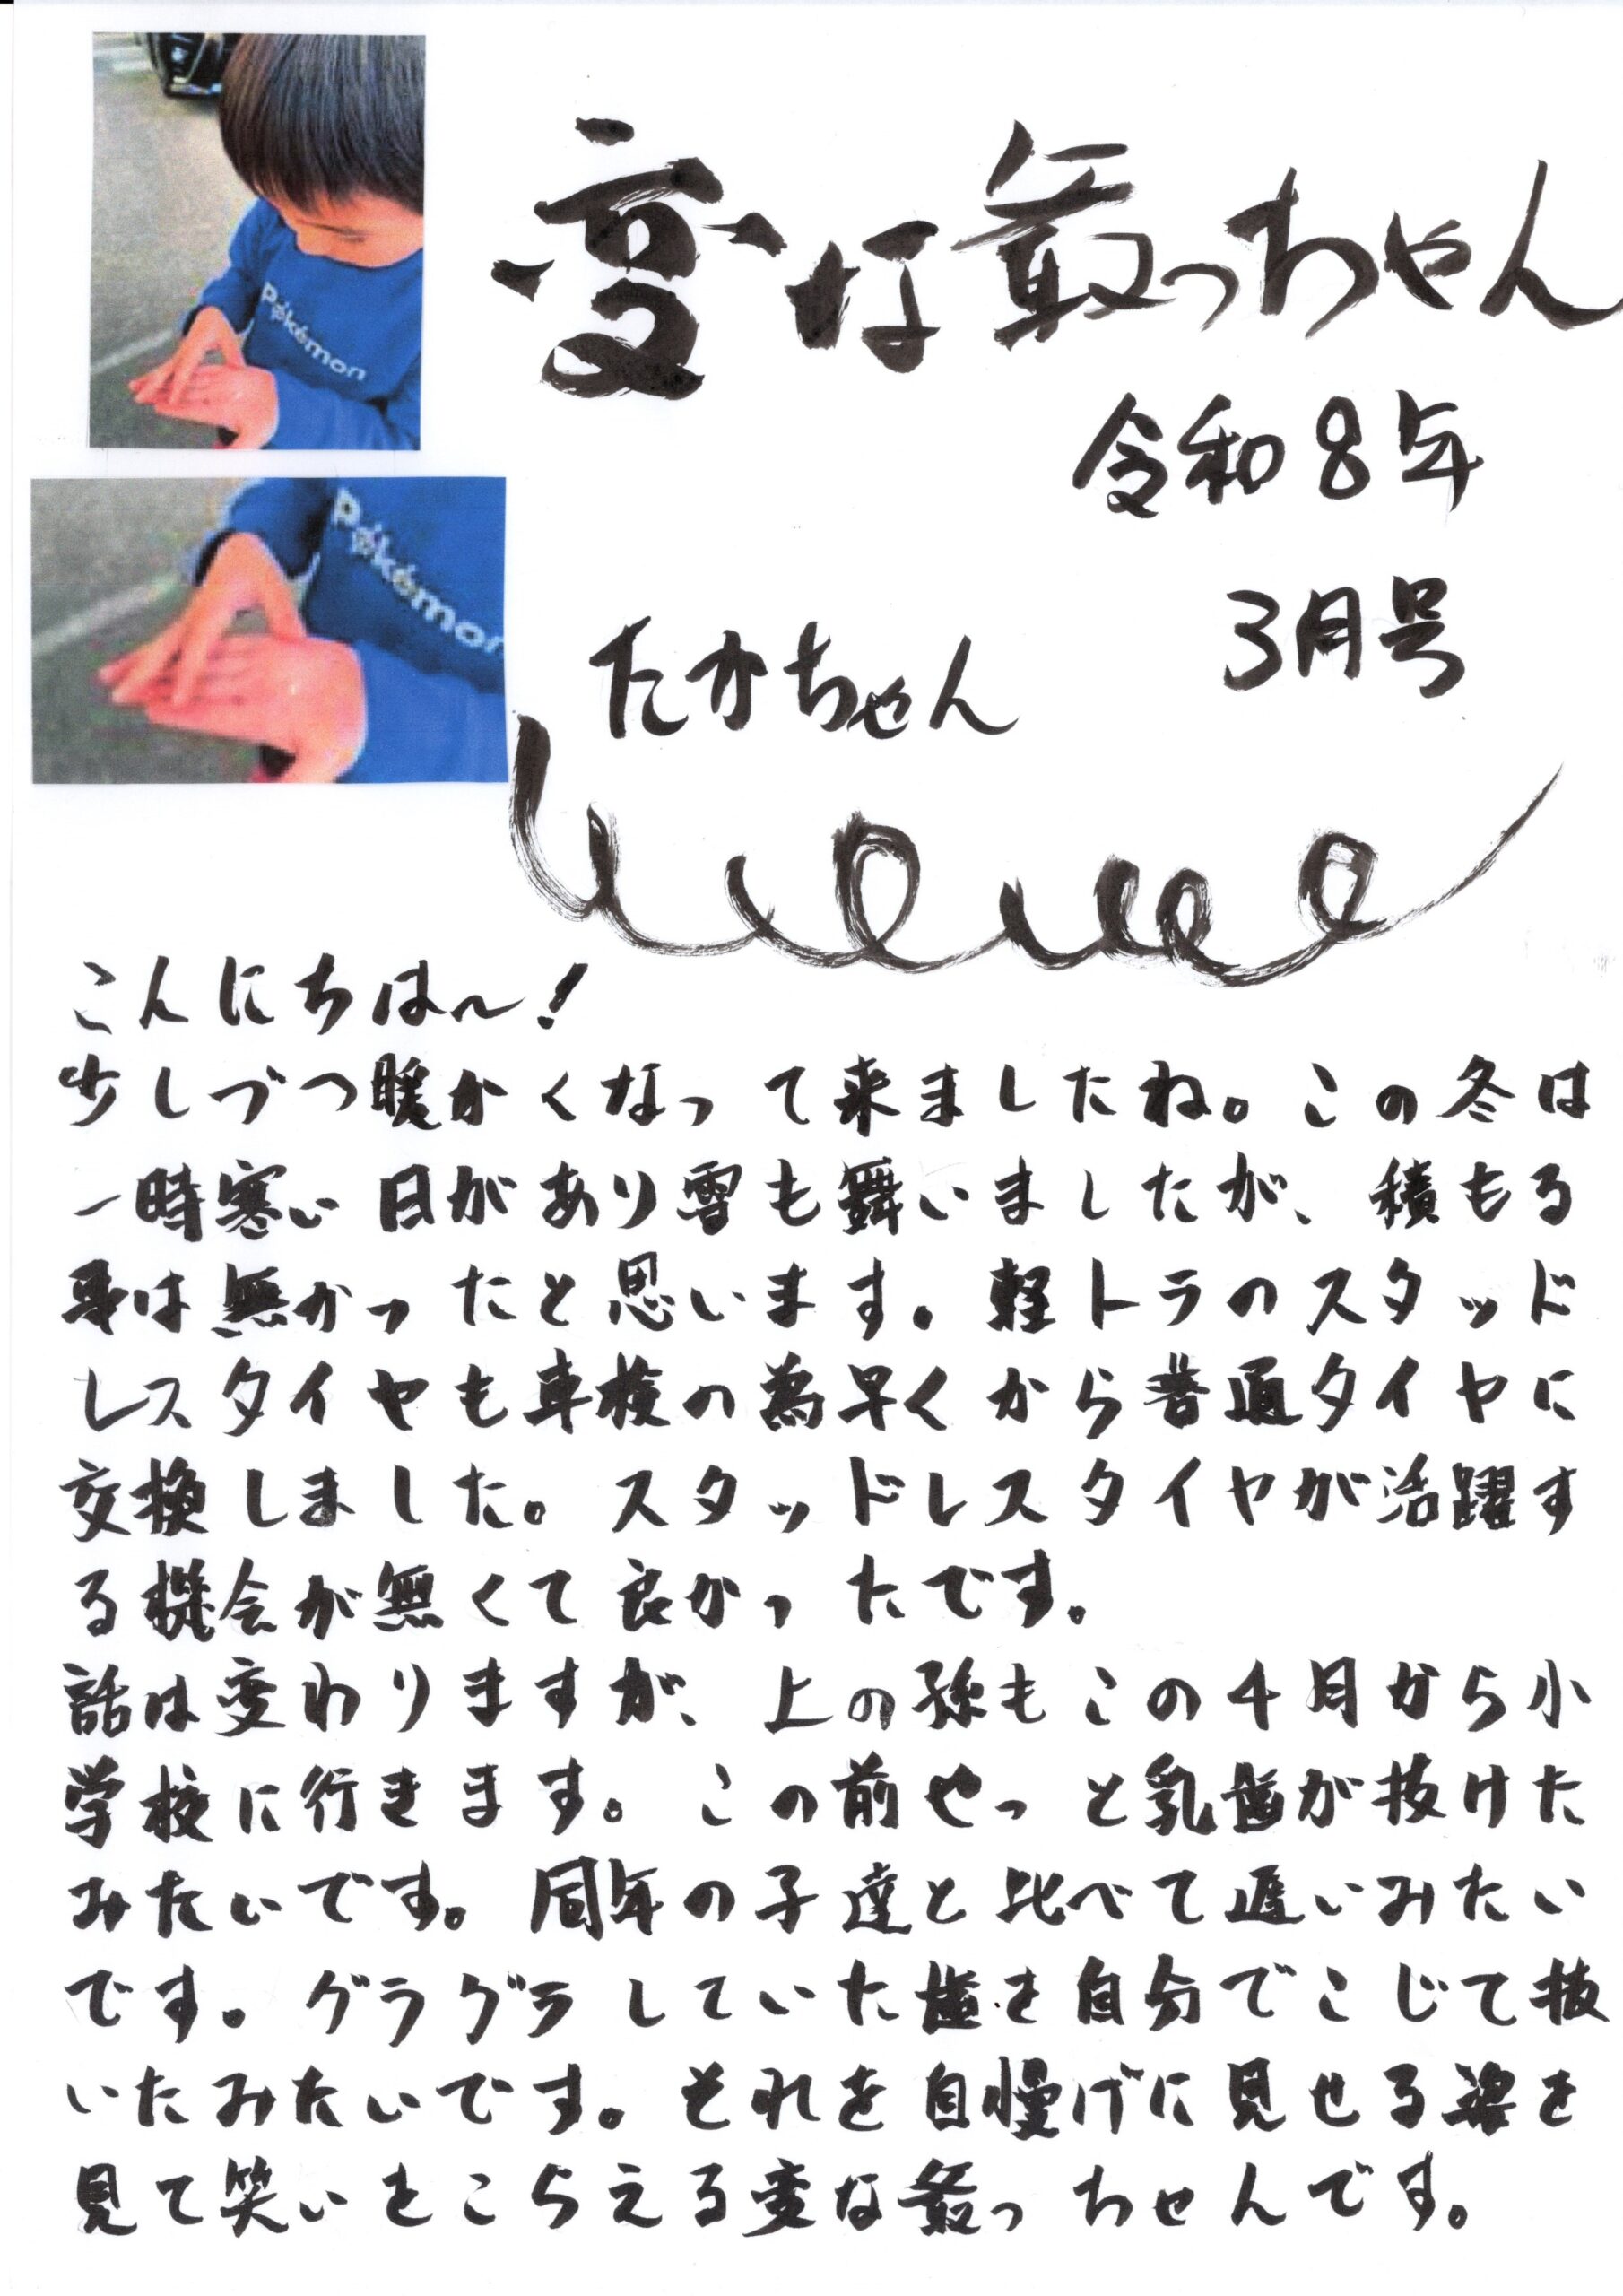 Pokémon
変な最っちゃん
令和8年
3月号
Pokémon
たかちゃん
こんにちは～!
少しづつ暖かくなって来ましたね。この冬は
一時寒い日があり雪も舞いましたが、積もる
事は無かったと思います。軽トラのスタッド
レスタイヤも車検の為早くから普通タイヤに
交換しました。スタッドレスタイヤが活躍す
る機会が無くて良かったです。
話は変わりますが、上の孫もこの4月から小
学校に行きます。この前やっと乳歯が抜けた
みたいです。同年の子達と比べて遅いみたい
です。グラグラしていた歯を自分でこじて抜
いたみたいです。それを自慢げに見せる姿を
見て笑いをこらえる変な最っちゃんです。